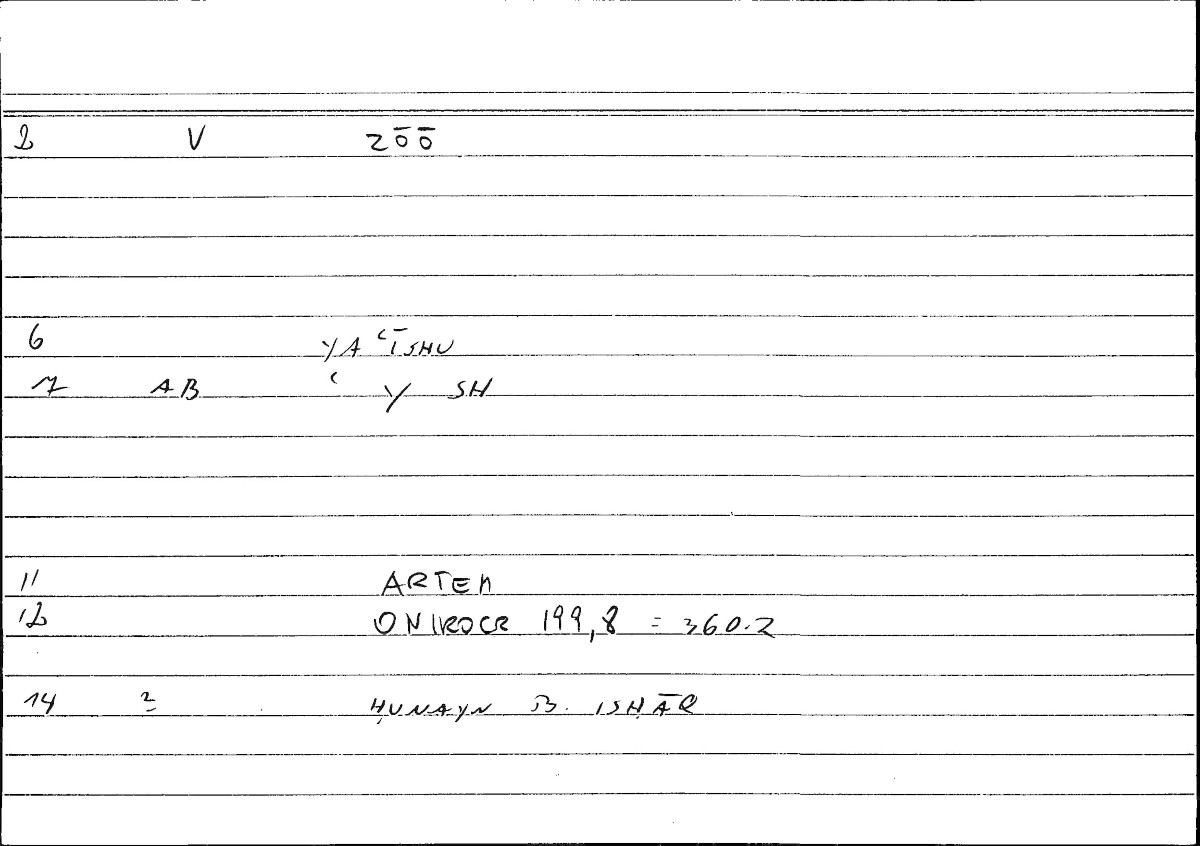 2 V zōō
6 YAʿĪSHU
7 AB ʿ Y SH
11 ARTEM
12 ONIROCR 199,8 = 360.2
14 2 ḤUNAYN B. ISḤĀQ